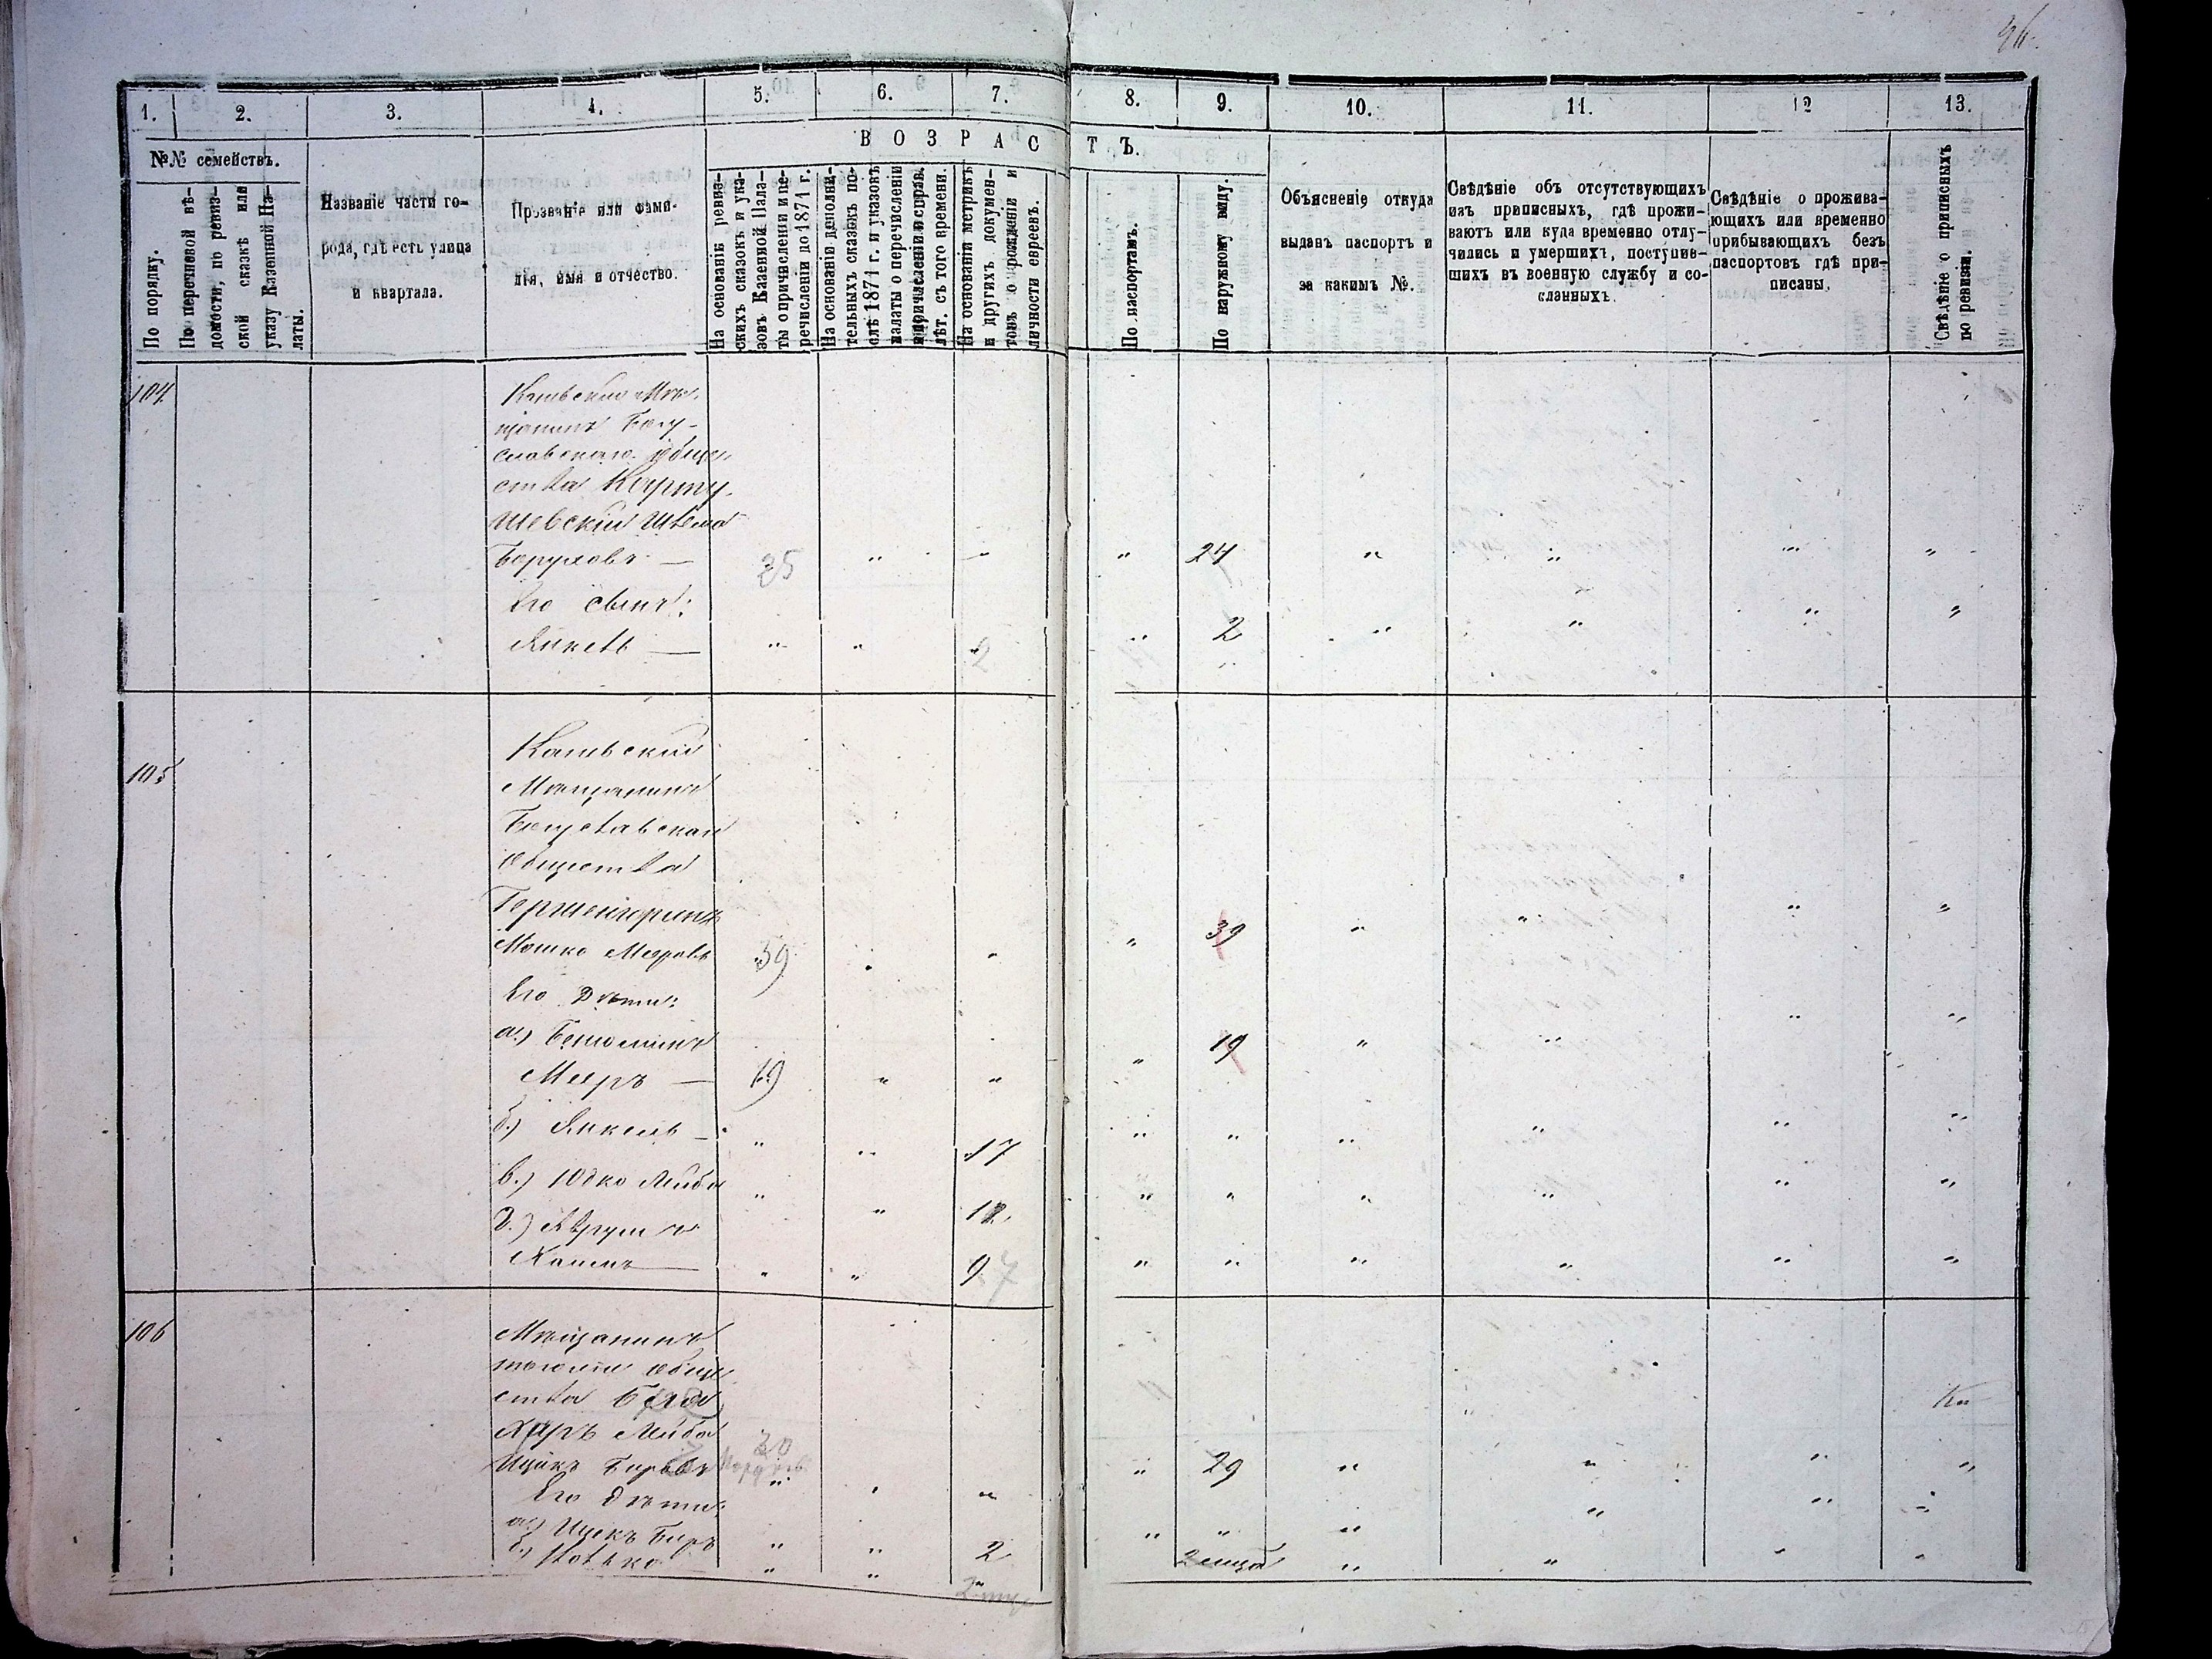 1. 2. 3. 4. 5. 6. 7. 8. 9. 10. 11. 12 13.
В О З Р А С Т Ъ.
№№ семействъ.
По порядку.
По перечневой вѣ-
домости, по ревиз-
ской сказкѣ или
указу Казенной Па-
латы.
Названіе части го-
рода, гдѣ есть улица
и квартала.
Прозваніе или фами-
лія, имя и отчество.
На основаніи ревиз-
скихъ сказокъ и ука-
зовъ Казенной Пала-
ты о причисленіи и пе-
речисленіи по 1871 г.
На основаніи дополни-
тельныхъ сказокъ по-
слѣ 1871 г. и указовъ
палаты о перечисленіи
лѣт. съ того времени.
На основаніи метрикъ
и другихъ докумен-
товъ о рожденіи и
личности евреевъ.
По паспортамъ.
По наружному виду.
Объясненіе откуда
выданъ паспортъ и
за какимъ №.
Свѣдѣніе объ отсутствующихъ
изъ приписныхъ, гдѣ прожи-
ваютъ или куда временно отлу-
чились и умершихъ, поступив-
шихъ въ военную службу и со-
сланныхъ.
Свѣдѣніе о прожива-
ющихъ или временно
прибывающихъ безъ
паспортовъ гдѣ при-
писаны.
Свѣдѣніе о приписныхъ
по ревизіи.
104
Каневскій Мѣ-
щанинъ Богу-
славскаго Обще-
ства
Шлема
Боруховъ — 25 " " " 24 " " " "
Его сынъ:
Янкель — " " 2 " 2 " " " "
105
Каневскій
Мѣщанинъ
Богуславскаго
Общества
Герценгоринъ
Мошко Мееровъ 39 " " " 39 " " " "
Его Дѣти:
а.) Беніоминъ
Мееръ — 19 " " " 19 " " " "
б.) Янкель — " " 17 " " " " " "
в.) Юдко Лейба " " 12 " " " " " "
г.) Аврумъ
Хаимъ — " " 9 7 " " " " " "
106
Мѣщанинъ
тогоже обще
ства
Лейба
Ицикъ 30 " " " 29 " " " "
Его дѣти:
а.) Ицекъ Беръ " " 2 " " " " " "
б.) " " " 2 мца " " " "